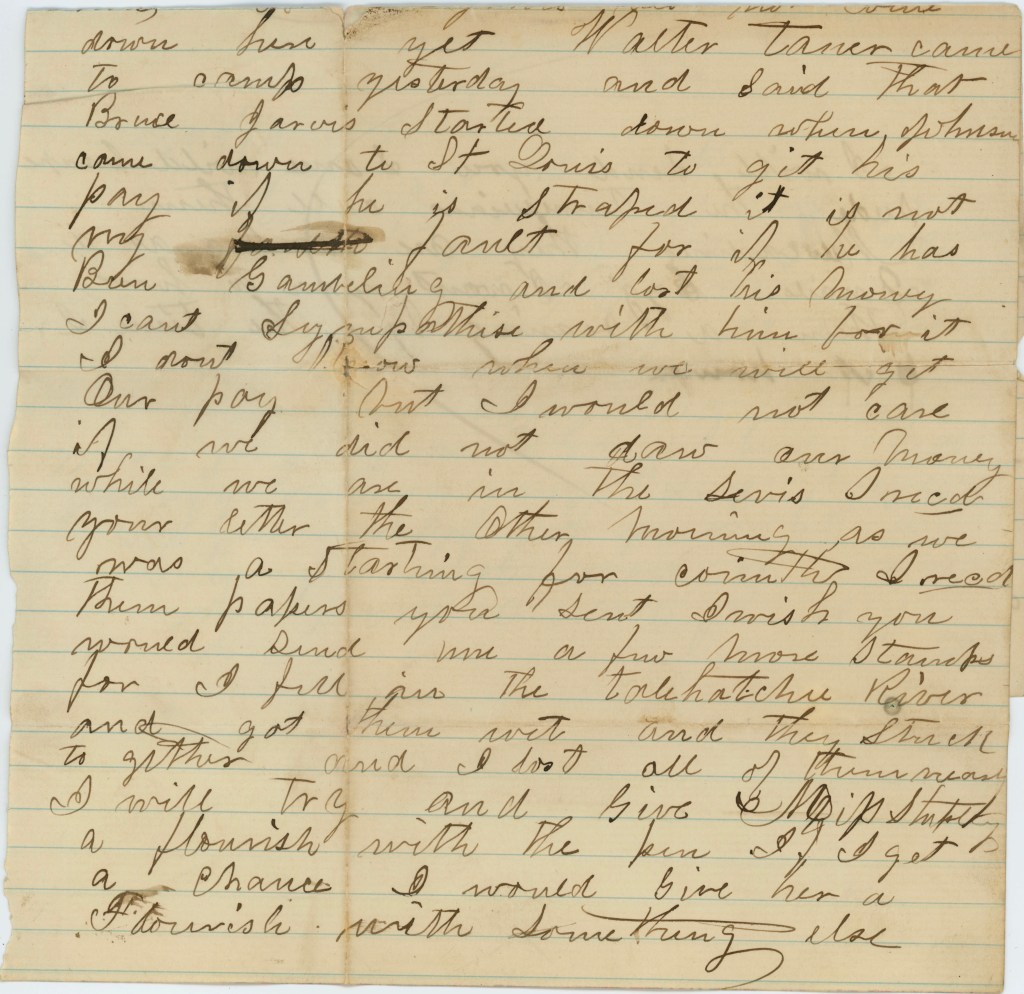 come
down here yet Walter Taner came
to camp yesterday and said that
Bruce Jarvis started down when Johnson
came down to St Louis to git his
pay if he is straped it is not
my fault for if he has
Ben Gambeling and lost his money
I cant Sympathise with him for it
I dont know when we will get
Our pay but I would not care
if we did not daw our money
while we are in the servis I recd
your letter the Other morning as we
was a Starting for corinth I recd
them papers you sent I wish you
would send me a few more stamps
for I fell in the talehatchie River
and got them wet and they Stuck
to gither and I lost all of them nearly
I will try and Give Miss
a flourish with the pen If I get
a chance I would Give her a
Flourish with something else